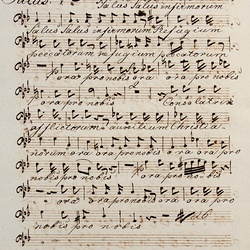 Salus Salus infirmorum
Salus Salus infirmorum Refugium
peccatorum refugium peccatorum
ora pro nobis ora ora pro nobis
ora pro nobis Consolatrix
afflictorum auxilium Christia
norum ora ora pro nobis ora ora pro
nobis pro nobis ora pro nobis
ora ora pro nobis ora ora pro
nobis pro nobis